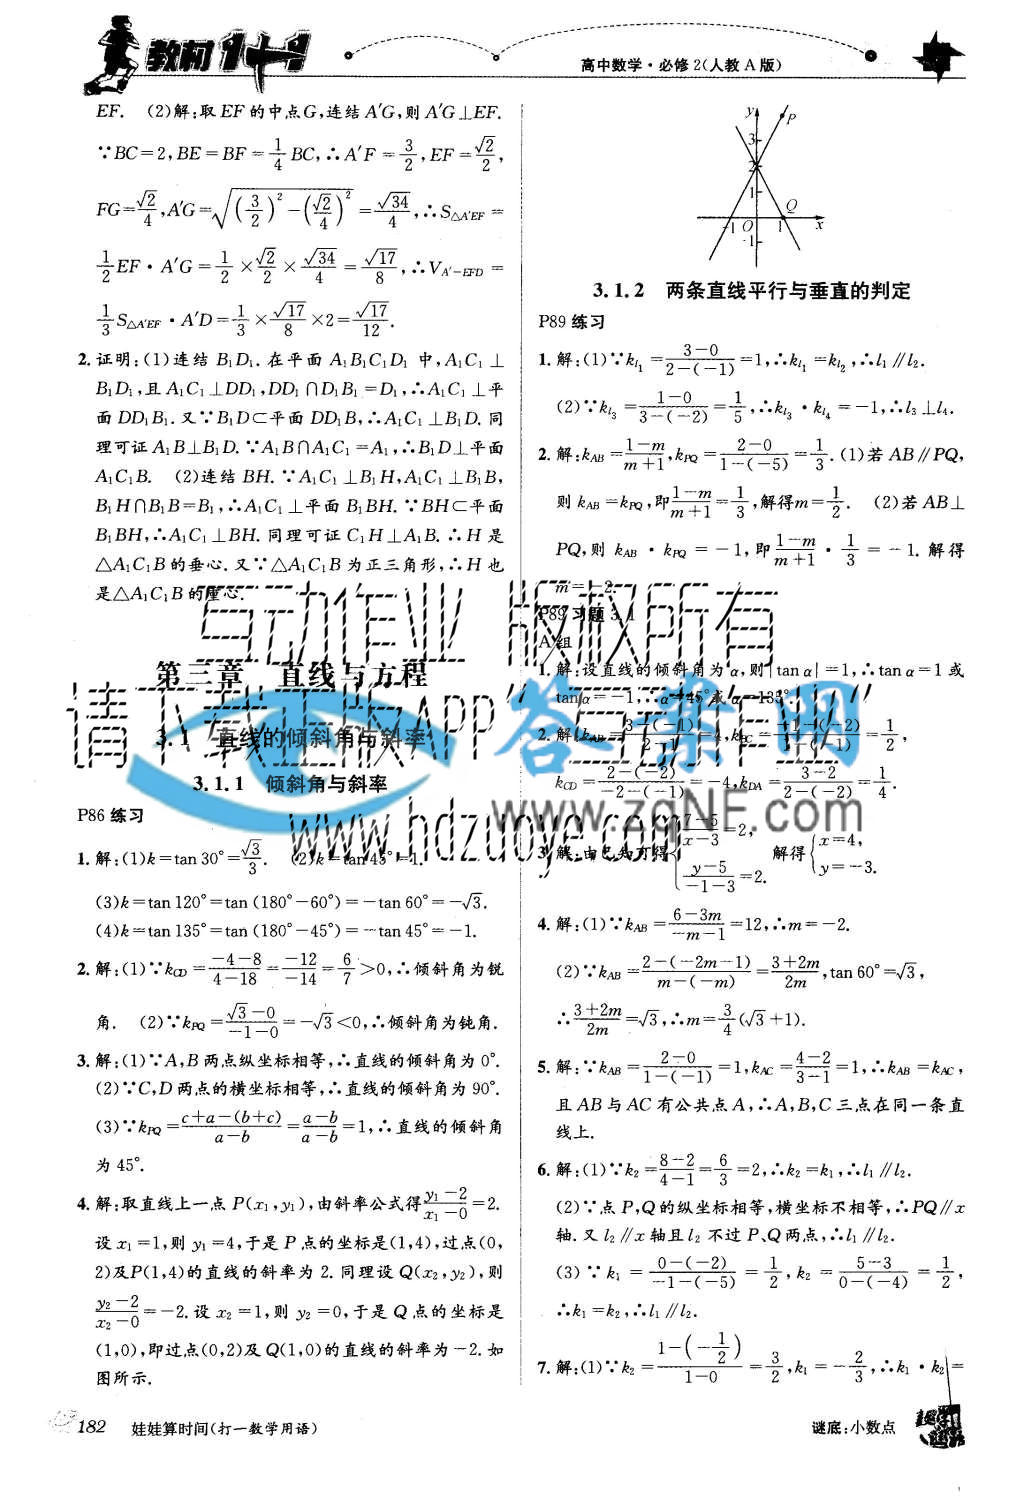 教材1+1
高中数学·必修2(人教A版)
EF. (2)解:取EF的中点G,连结A′G,则A′G⊥EF.
∵BC=2,BE=BF=1/4 BC,∴A′F=3/2,EF=√2/2,
FG=√2/4,A′G=√((3/2)²-(√2/4)²)=√34/4,∴S△A′EF=
1/2 EF·A′G=1/2×√2/2×√34/4=√17/8,∴V A′-EFD=
1/3 S△A′EF·A′D=1/3×√17/8×2=√17/12.
2.证明:(1)连结B₁D₁.在平面A₁B₁C₁D₁中,A₁C₁⊥
B₁D₁,且A₁C₁⊥DD₁,DD₁∩D₁B₁=D₁,∴A₁C₁⊥平
面DD₁B₁.又∵B₁D⊂平面DD₁B,∴A₁C₁⊥B₁D.同
理可证A₁B⊥B₁D.∵A₁B∩A₁C₁=A₁,∴B₁D⊥平面
A₁C₁B. (2)连结BH.∵A₁C₁⊥B₁H,A₁C₁⊥B₁B,
B₁H∩B₁B=B₁,∴A₁C₁⊥平面B₁BH.∵BH⊂平面
B₁BH,∴A₁C₁⊥BH.同理可证C₁H⊥A₁B.∴H是
△A₁C₁B的垂心.又∵△A₁C₁B为正三角形,∴H也
是△A₁C₁B的重心.
第三章 直线与方程
3.1 直线的倾斜角与斜率
3.1.1 倾斜角与斜率
P86练习
1.解:(1)k=tan 30°=√3/3. (2)k=tan 45°=1.
(3)k=tan 120°=tan(180°-60°)=-tan 60°=-√3.
(4)k=tan 135°=tan(180°-45°)=-tan 45°=-1.
2.解:(1)∵k_CD=(-4-8)/(4-18)=-12/-14=6/7>0,∴倾斜角为锐
角. (2)∵k_PQ=(√3-0)/(-1-0)=-√3<0,∴倾斜角为钝角.
3.解:(1)∵A,B两点纵坐标相等,∴直线的倾斜角为0°.
(2)∵C,D两点的横坐标相等,∴直线的倾斜角为90°.
(3)∵k_PQ=(c+a-(b+c))/(a-b)=(a-b)/(a-b)=1,∴直线的倾斜角
为45°.
4.解:取直线上一点P(x₁,y₁),由斜率公式得(y₁-2)/(x₁-0)=2.
设x₁=1,则y₁=4,于是P点的坐标是(1,4),过点(0,
2)及P(1,4)的直线的斜率为2.同理设Q(x₂,y₂),则
(y₂-2)/(x₂-0)=-2.设x₂=1,则y₂=0,于是Q点的坐标是
(1,0),即过点(0,2)及Q(1,0)的直线的斜率为-2.如
图所示.
y
P
3
2
1
Q
-1 O 1 x
-1
3.1.2 两条直线平行与垂直的判定
P89练习
1.解:(1)∵k_l₁=(3-0)/(2-(-1))=1,∴k_l₁=k_l₂,∴l₁∥l₂.
(2)∵k_l₃=(1-0)/(3-(-2))=1/5,∴k_l₃·k_l₄=-1,∴l₃⊥l₄.
2.解:k_AB=(1-m)/(m+1),k_PQ=(2-0)/(1-(-5))=1/3.(1)若AB∥PQ,
则k_AB=k_PQ,即(1-m)/(m+1)=1/3,解得m=1/2. (2)若AB⊥
PQ,则k_AB·k_PQ=-1,即(1-m)/(m+1)·1/3=-1.解得
m=-2.
P89习题3.1
A组
1.解:设直线的倾斜角为α,则|tan α|=1,∴tan α=1或
tan α=-1,∴α=45°或α=135°.
2.解:k_AB=(3-(-1))/(2-1)=4,k_BC=(-1-(-2))/(1-(-1))=1/2,
k_CD=(2-(-2))/(-2-(-1))=-4,k_DA=(3-2)/(2-(-2))=1/4.
3.解:由已知可得{(7-5)/(x-3)=2, (y-5)/(-1-3)=2. 解得{x=4, y=-3.
4.解:(1)∵k_AB=(6-3m)/(-m-1)=12,∴m=-2.
(2)∵k_AB=(2-(-2m-1))/(m-(-m))=(3+2m)/2m,tan 60°=√3,
∴(3+2m)/2m=√3,∴m=3/4(√3+1).
5.解:∵k_AB=(2-0)/(1-(-1))=1,k_AC=(4-2)/(3-1)=1,∴k_AB=k_AC,
且AB与AC有公共点A,∴A,B,C三点在同一条直
线上.
6.解:(1)∵k₂=(8-2)/(4-1)=6/3=2,∴k₂=k₁,∴l₁∥l₂.
(2)∵点P,Q的纵坐标相等,横坐标不相等,∴PQ∥x
轴.又l₂∥x轴且l₂不过P、Q两点,∴l₁∥l₂.
(3)∵k₁=(0-(-2))/(-1-(-5))=1/2,k₂=(5-3)/(0-(-4))=1/2,
∴k₁=k₂,∴l₁∥l₂.
7.解:(1)∵k₂=(1-(-1/2))/(1-0)=3/2,k₁=-2/3,∴k₁·k₂=
与动作业 版权所有
请下载正版APP“与动作业”
www.hdzuoye.com
答案网
www.zqNF.com
182 娃娃算时间(打一数学用语)
谜底:小数点